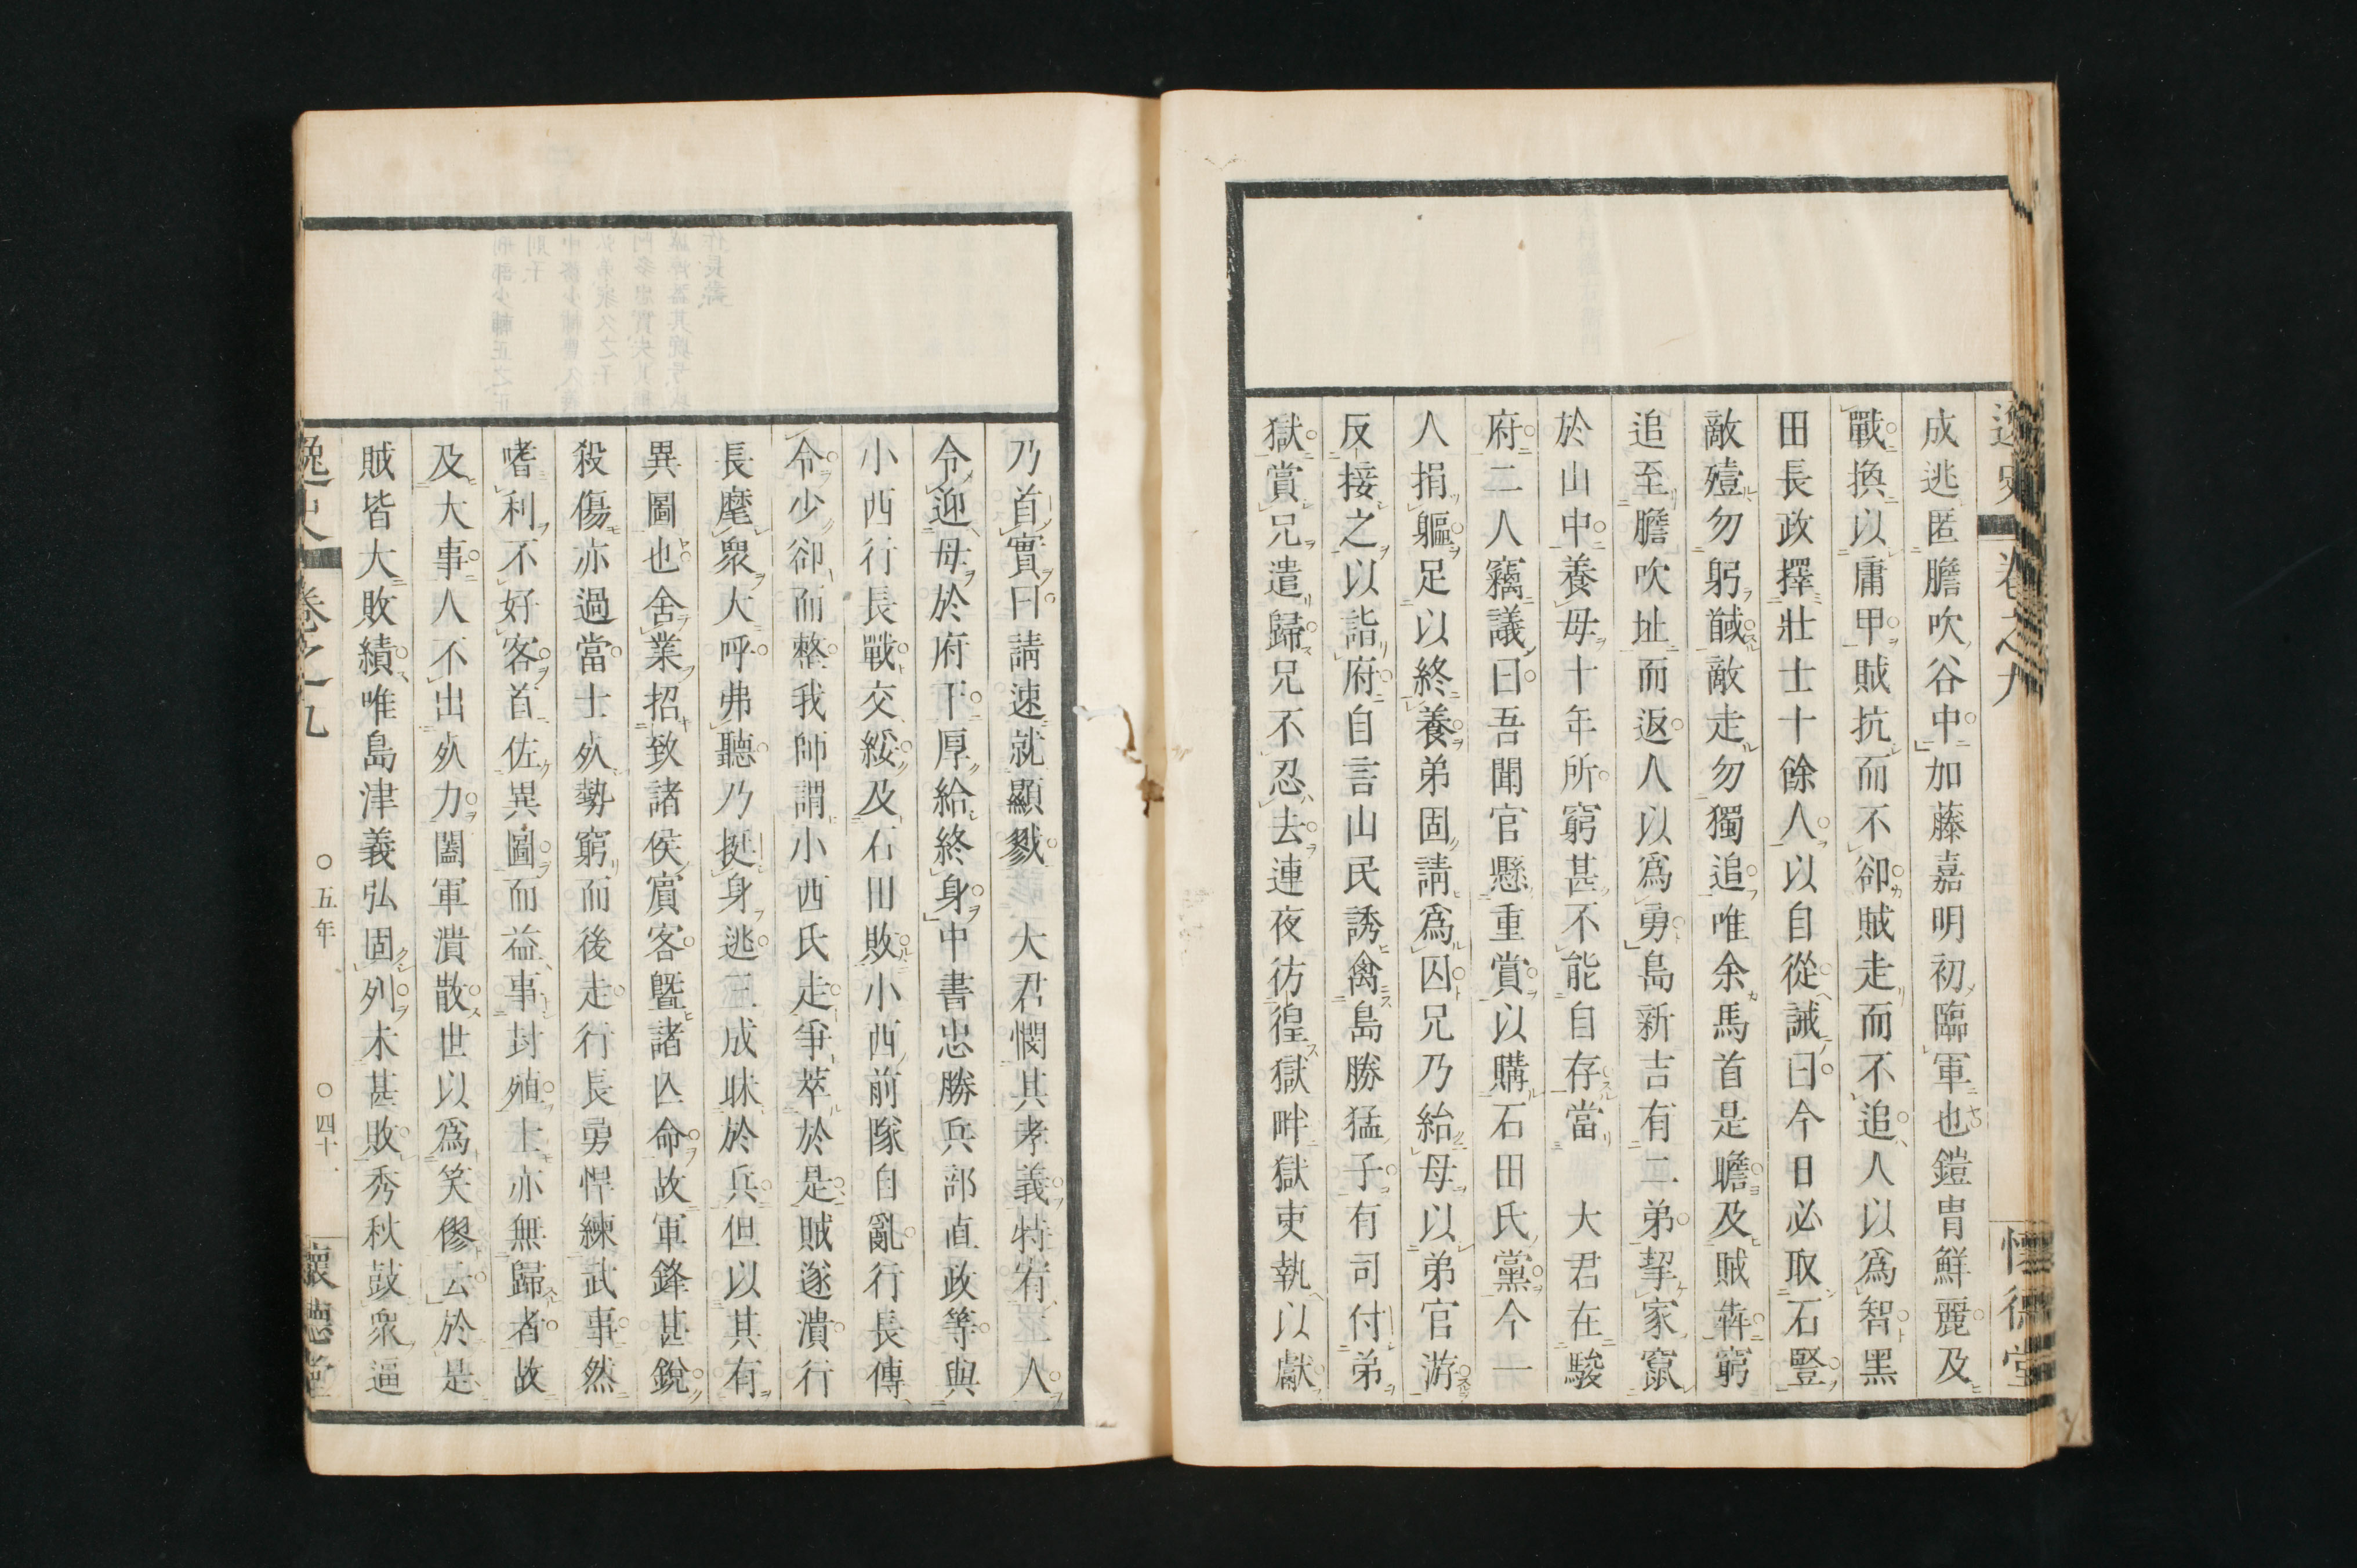 逸史 卷之九 懷德堂
成逃匿膽吹谷中加藤嘉明初臨軍也鎧冑鮮麗及
戰換以庸甲賊抗而不卻賊走而不追人以爲智黑
田長政擇壯士十餘人以自從誡曰今日必取石豎
敵殪勿躬馘敵走勿獨追唯余馬首是瞻及賊犇窮
追至膽吹址而返人以爲勇島新吉有二弟挈家竄
於山中養母十年所窮甚不能自存當 大君在駿
府二人竊議曰吾聞官懸重賞以購石田氏黨今一
人捐軀足以終養弟固請爲囚兄乃紿母以弟官游
反接之以詣府自言山民誘禽島勝猛子有司付弟
獄賞兄遣歸兄不忍去連夜彷徨獄畔獄吏執以獻
乃首實曰請速就顯戮 大君憫其孝義特宥 人
令迎母於府下厚給終身中書忠勝兵部直政等與
小西行長戰交綏及石田敗小西前隊自亂行長傳
令少卻而整我師謂小西氏走爭萃於是賊遂潰行
長麾衆大呼弗聽乃挺身逃三成昧於兵但以其有
異圖也舍業招致諸侯賓客曁諸亾命故軍鋒甚銳
殺傷亦過當士㱾勢窮而後走行長勇悍練武事然
嗜利不好客首佐異圖而益事封殖士亦無歸者故
及大事人不出㱾力闔軍潰散世以爲笑僇云於是
賊皆大敗績唯島津義弘固列未甚敗秀秋鼓衆逼
逸史 卷之九 ○五年 ○四十 懷德堂